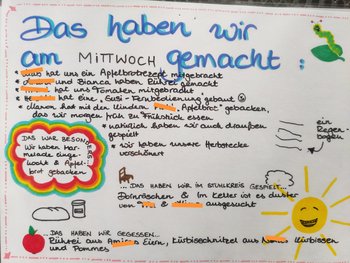 Das haben wir
am MITTWOCH gemacht:
hat uns ein Apfelbrotrezept mitgebracht
und Bianca haben Rührei gemacht
hat uns Tomaten mitgebracht
hat eine "Gusi-Fernbedienung" gebaut
Manon hat mit den Kindern "Apfelbrot" gebacken,
das wir morgen früh zu Frühstück essen
natürlich haben wir auch draußen
gespielt
wir haben unsere Herbstecke
verschönert
DAS WAR BESONDERS
Wir haben Mar-
melade einge-
kocht & Apfel-
brot gebacken
ein
Regen-
bogen
... DAS HABEN WIR IM STUHLKREIS GESPIELT...
Dornröschen & Im Keller ist es duster
von & ausgesucht
... DAS HABEN WIR GEGESSEN...
Rührei aus Eiern, Kürbisschnitzel aus Kürbissen
und Pommes